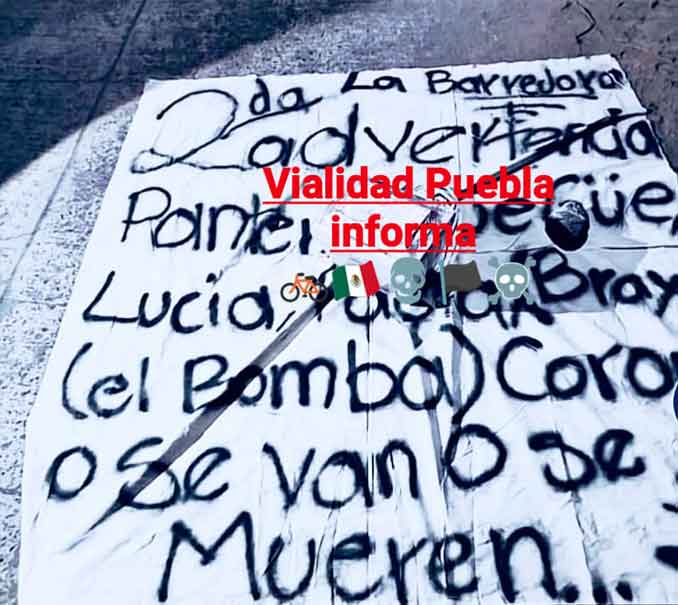 2da La Barredora
advertencia
Vialidad Puebla
informa
Lucia, Bray
(el Bomba) Coro
o se van o se
Mueren...